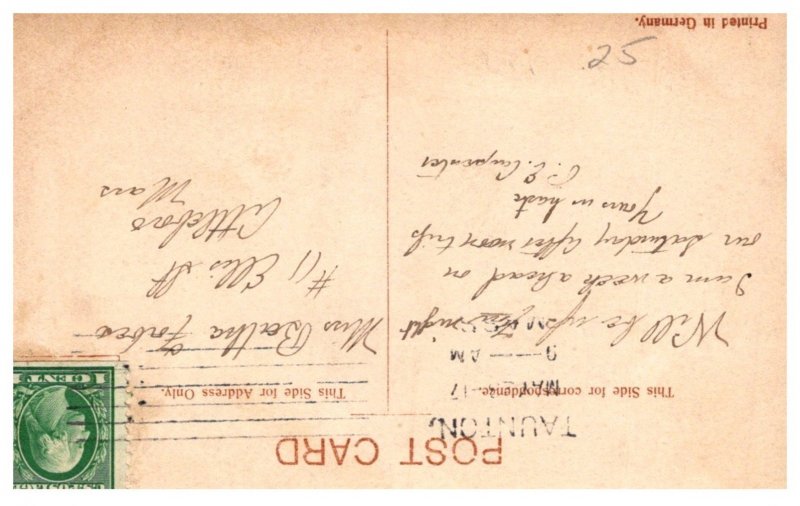 POST CARD
TAUNTON,
MAY
17
9 — AM
MASS.
This Side for correspondence.
This Side for Address Only.
U.S. POSTAGE
1 CENT
Will be up night
I am a week ahead on
our Saturday afternoon trip
Yours in haste
C. E. Carpenter
Miss Bertha Forbes
#11 Ellis St
Attleboro
Mass
25
Printed in Germany.